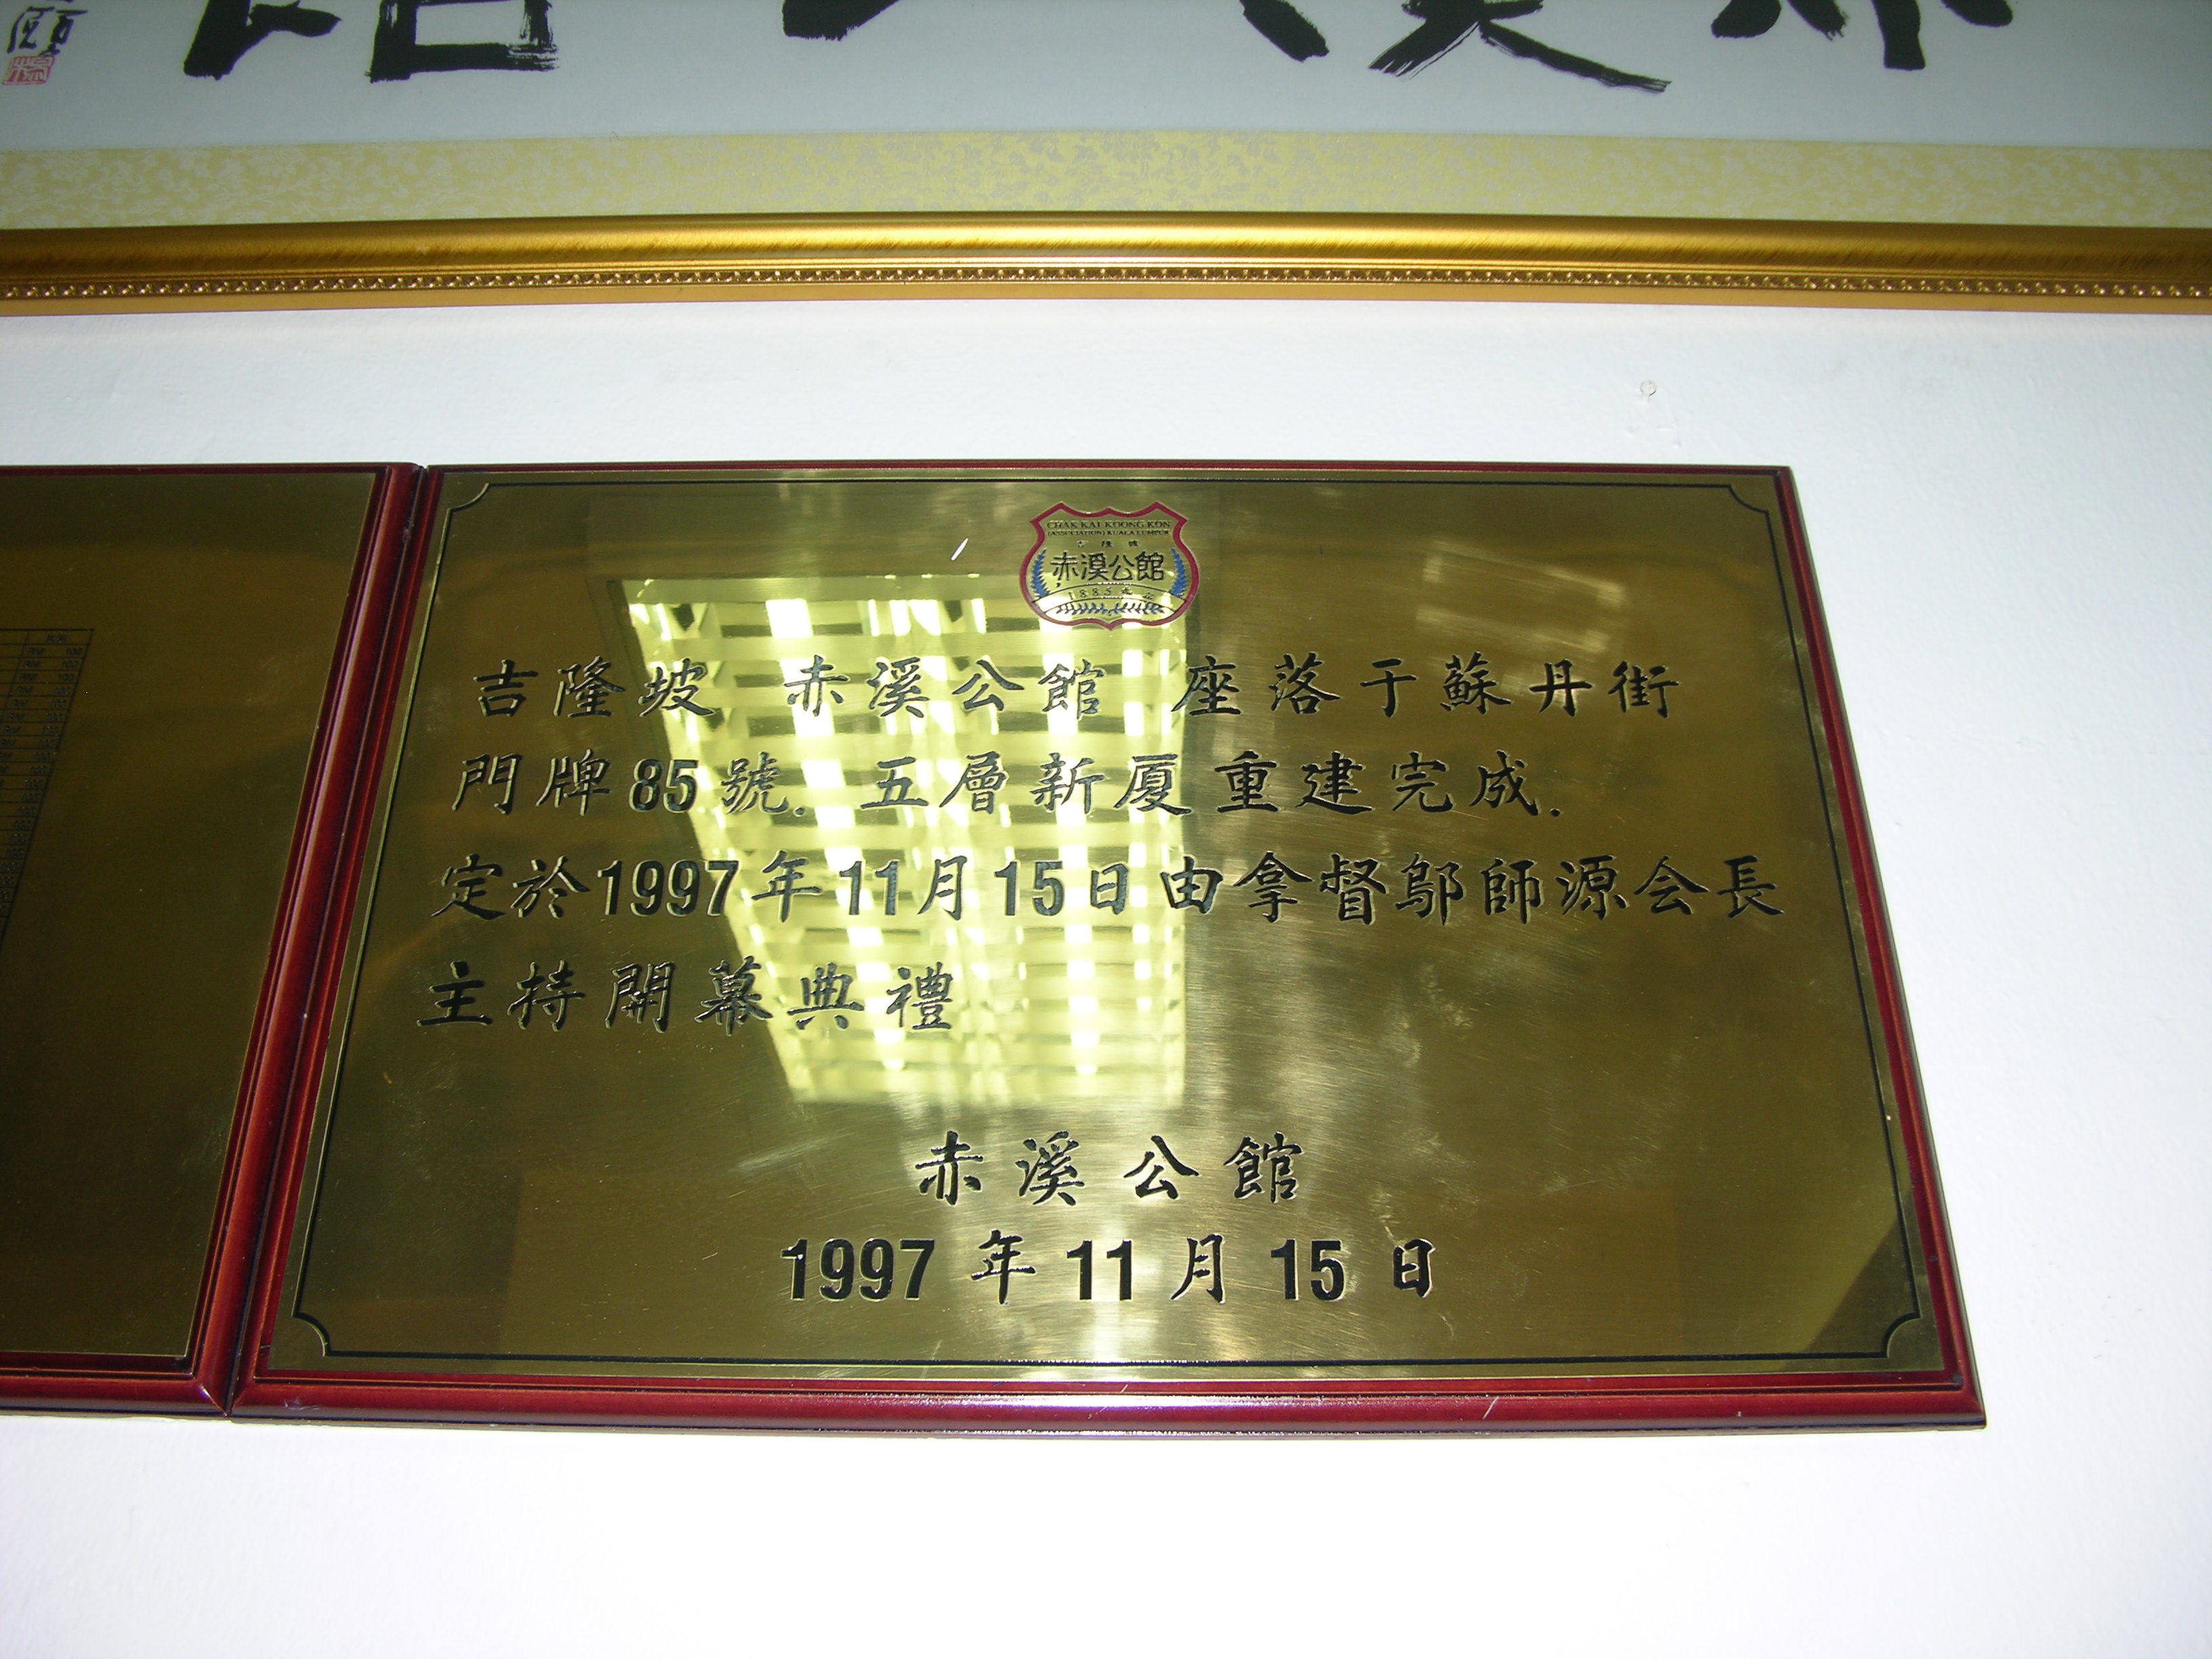 CHAK KAI KOONG KON
(ASSOCIATION) KUALA LUMPUR
吉隆坡
赤溪公館
1885
吉隆坡 赤溪公館 座落于蘇丹街
門牌85號. 五層新厦重建完成.
定於1997年11月15日由拿督鄔師源会長
主持開幕典禮
赤溪公館
1997年11月15日